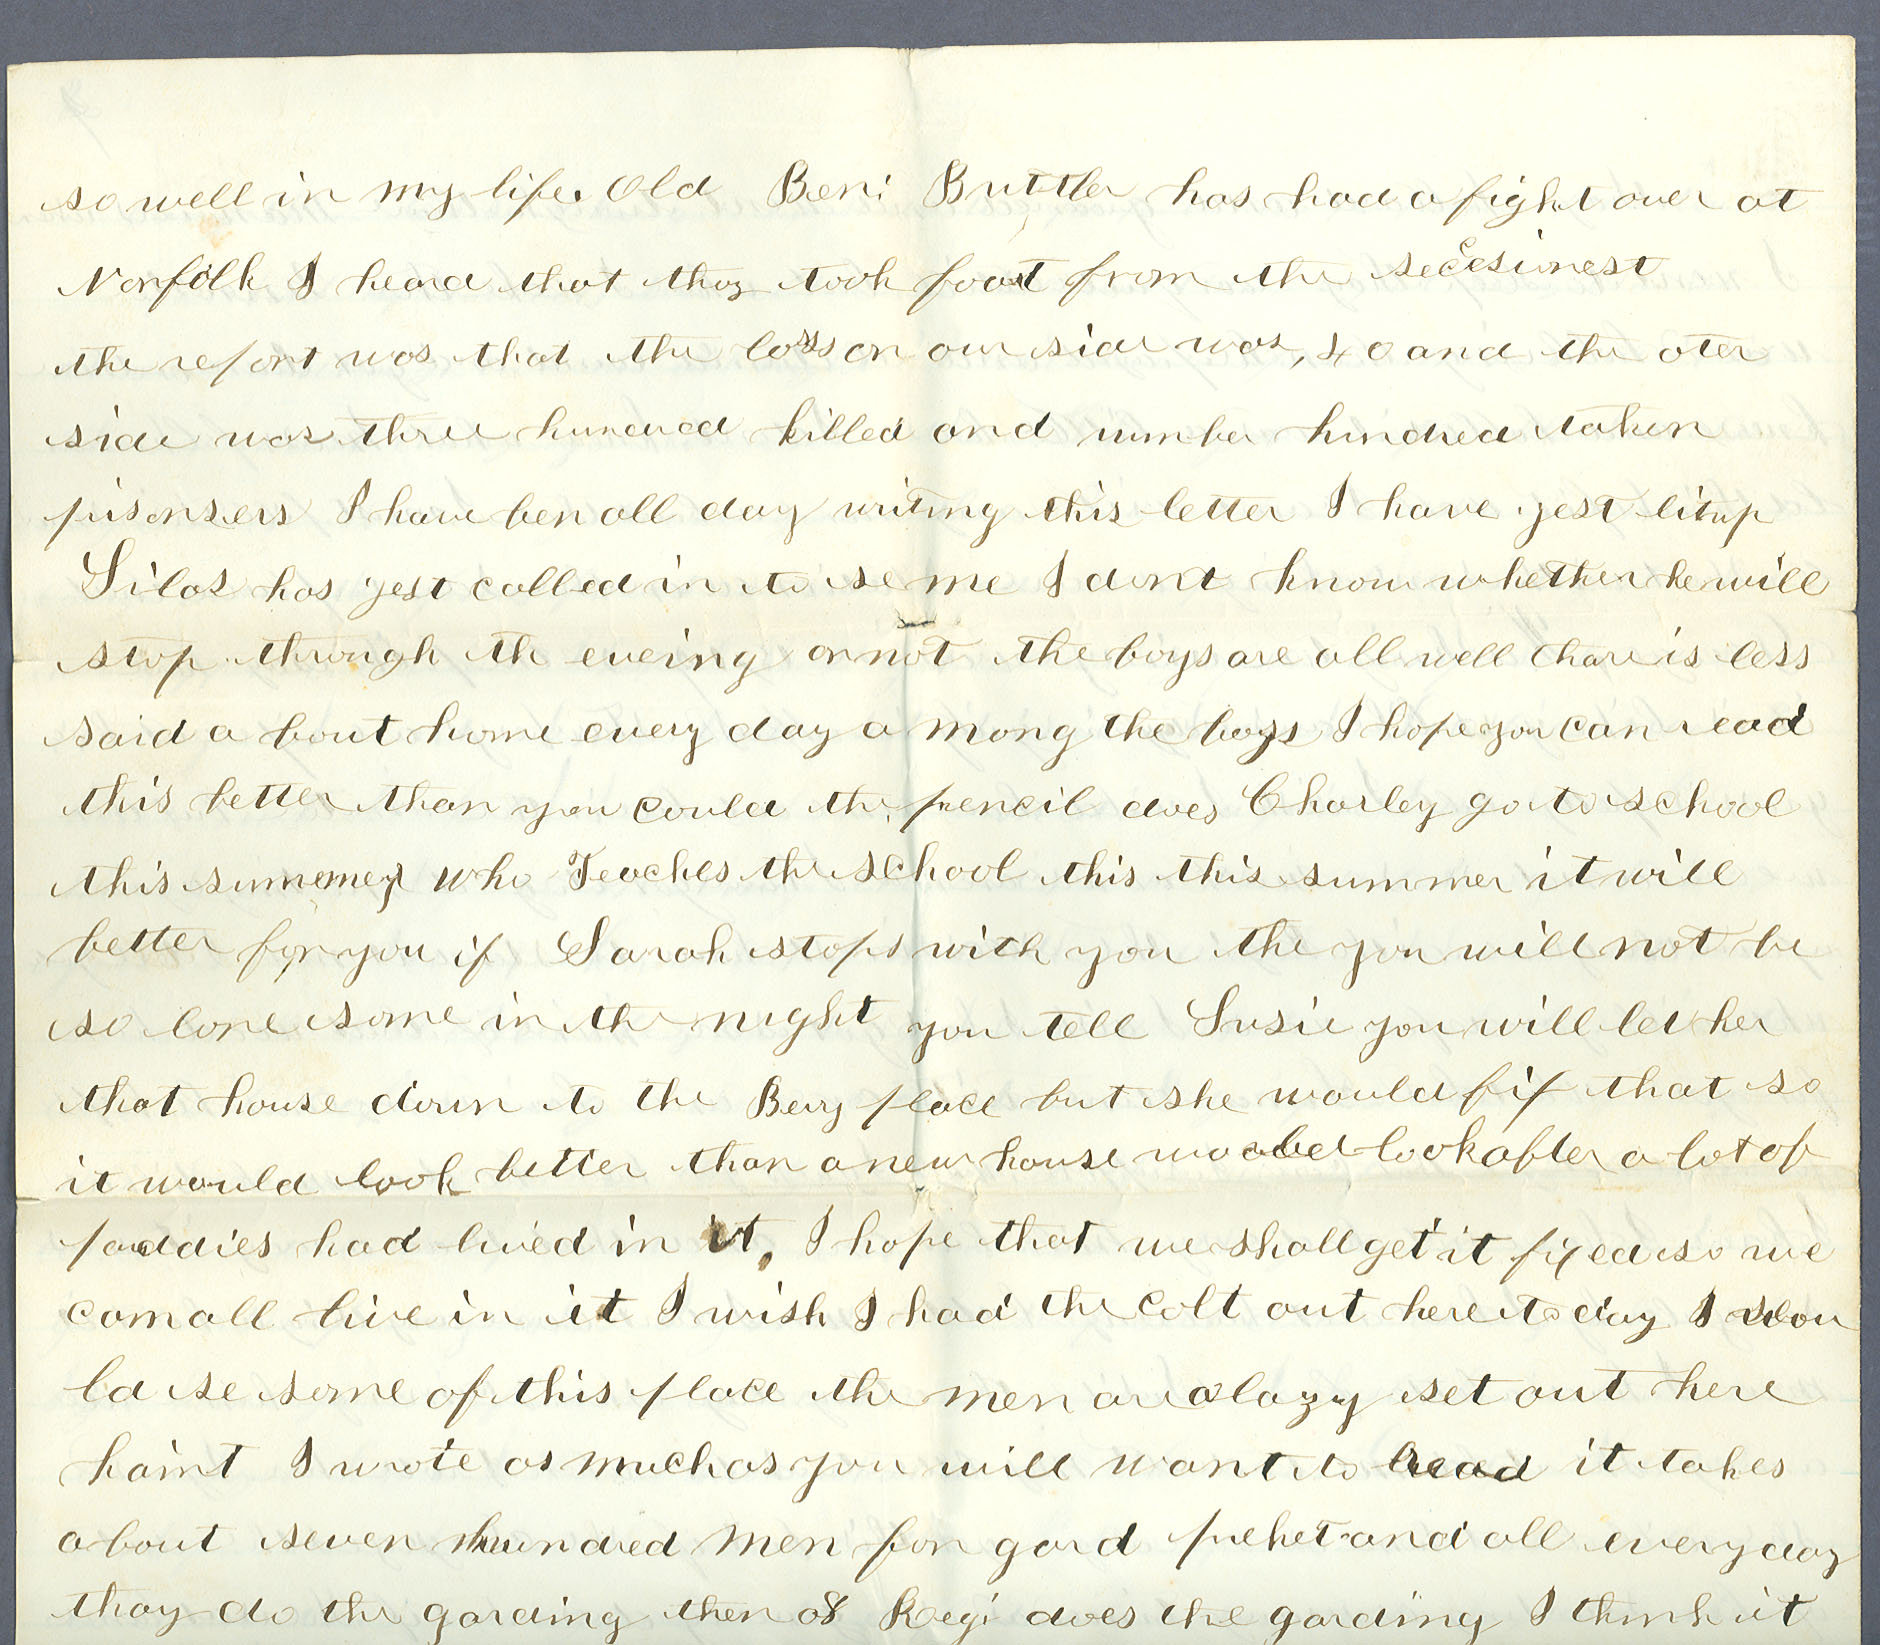 so well in my life. Old Beni Buttler has had a fight over at
Norfolk I heard that thay took foart from the secesionest
the report was that the loss on our side was, 40 and the oter
side was three hundred killed and number hundred taken
prisonsers I have ben all day writing this letter I have jest lit up
Silas has jest called in to se me I dont know whether he will
stop through th eveing or not the boys are all well thare is less
said a bout home every day a mong the boys I hope you can read
this better than you could the pencil does Charley go to school
this summer who Teaches the school this this summer it will
better for you if Sarah stops with you the you will not be
so lone some in the night you tell Susie you will let her
that house down to the Bery place but she would fix that so
it would look better than a new house would look after a lot of
paddies had lived in it, I hope that we shall get it fixed so we
cam all live in it I wish I had the colt out here to day I wou
ld se some of this place the men are a lazy set out here
haint I wrote as much as you will want to read it takes
about seven hundred men for gard picket and all every day
thay do the garding then 08 Regi does the garding I think it